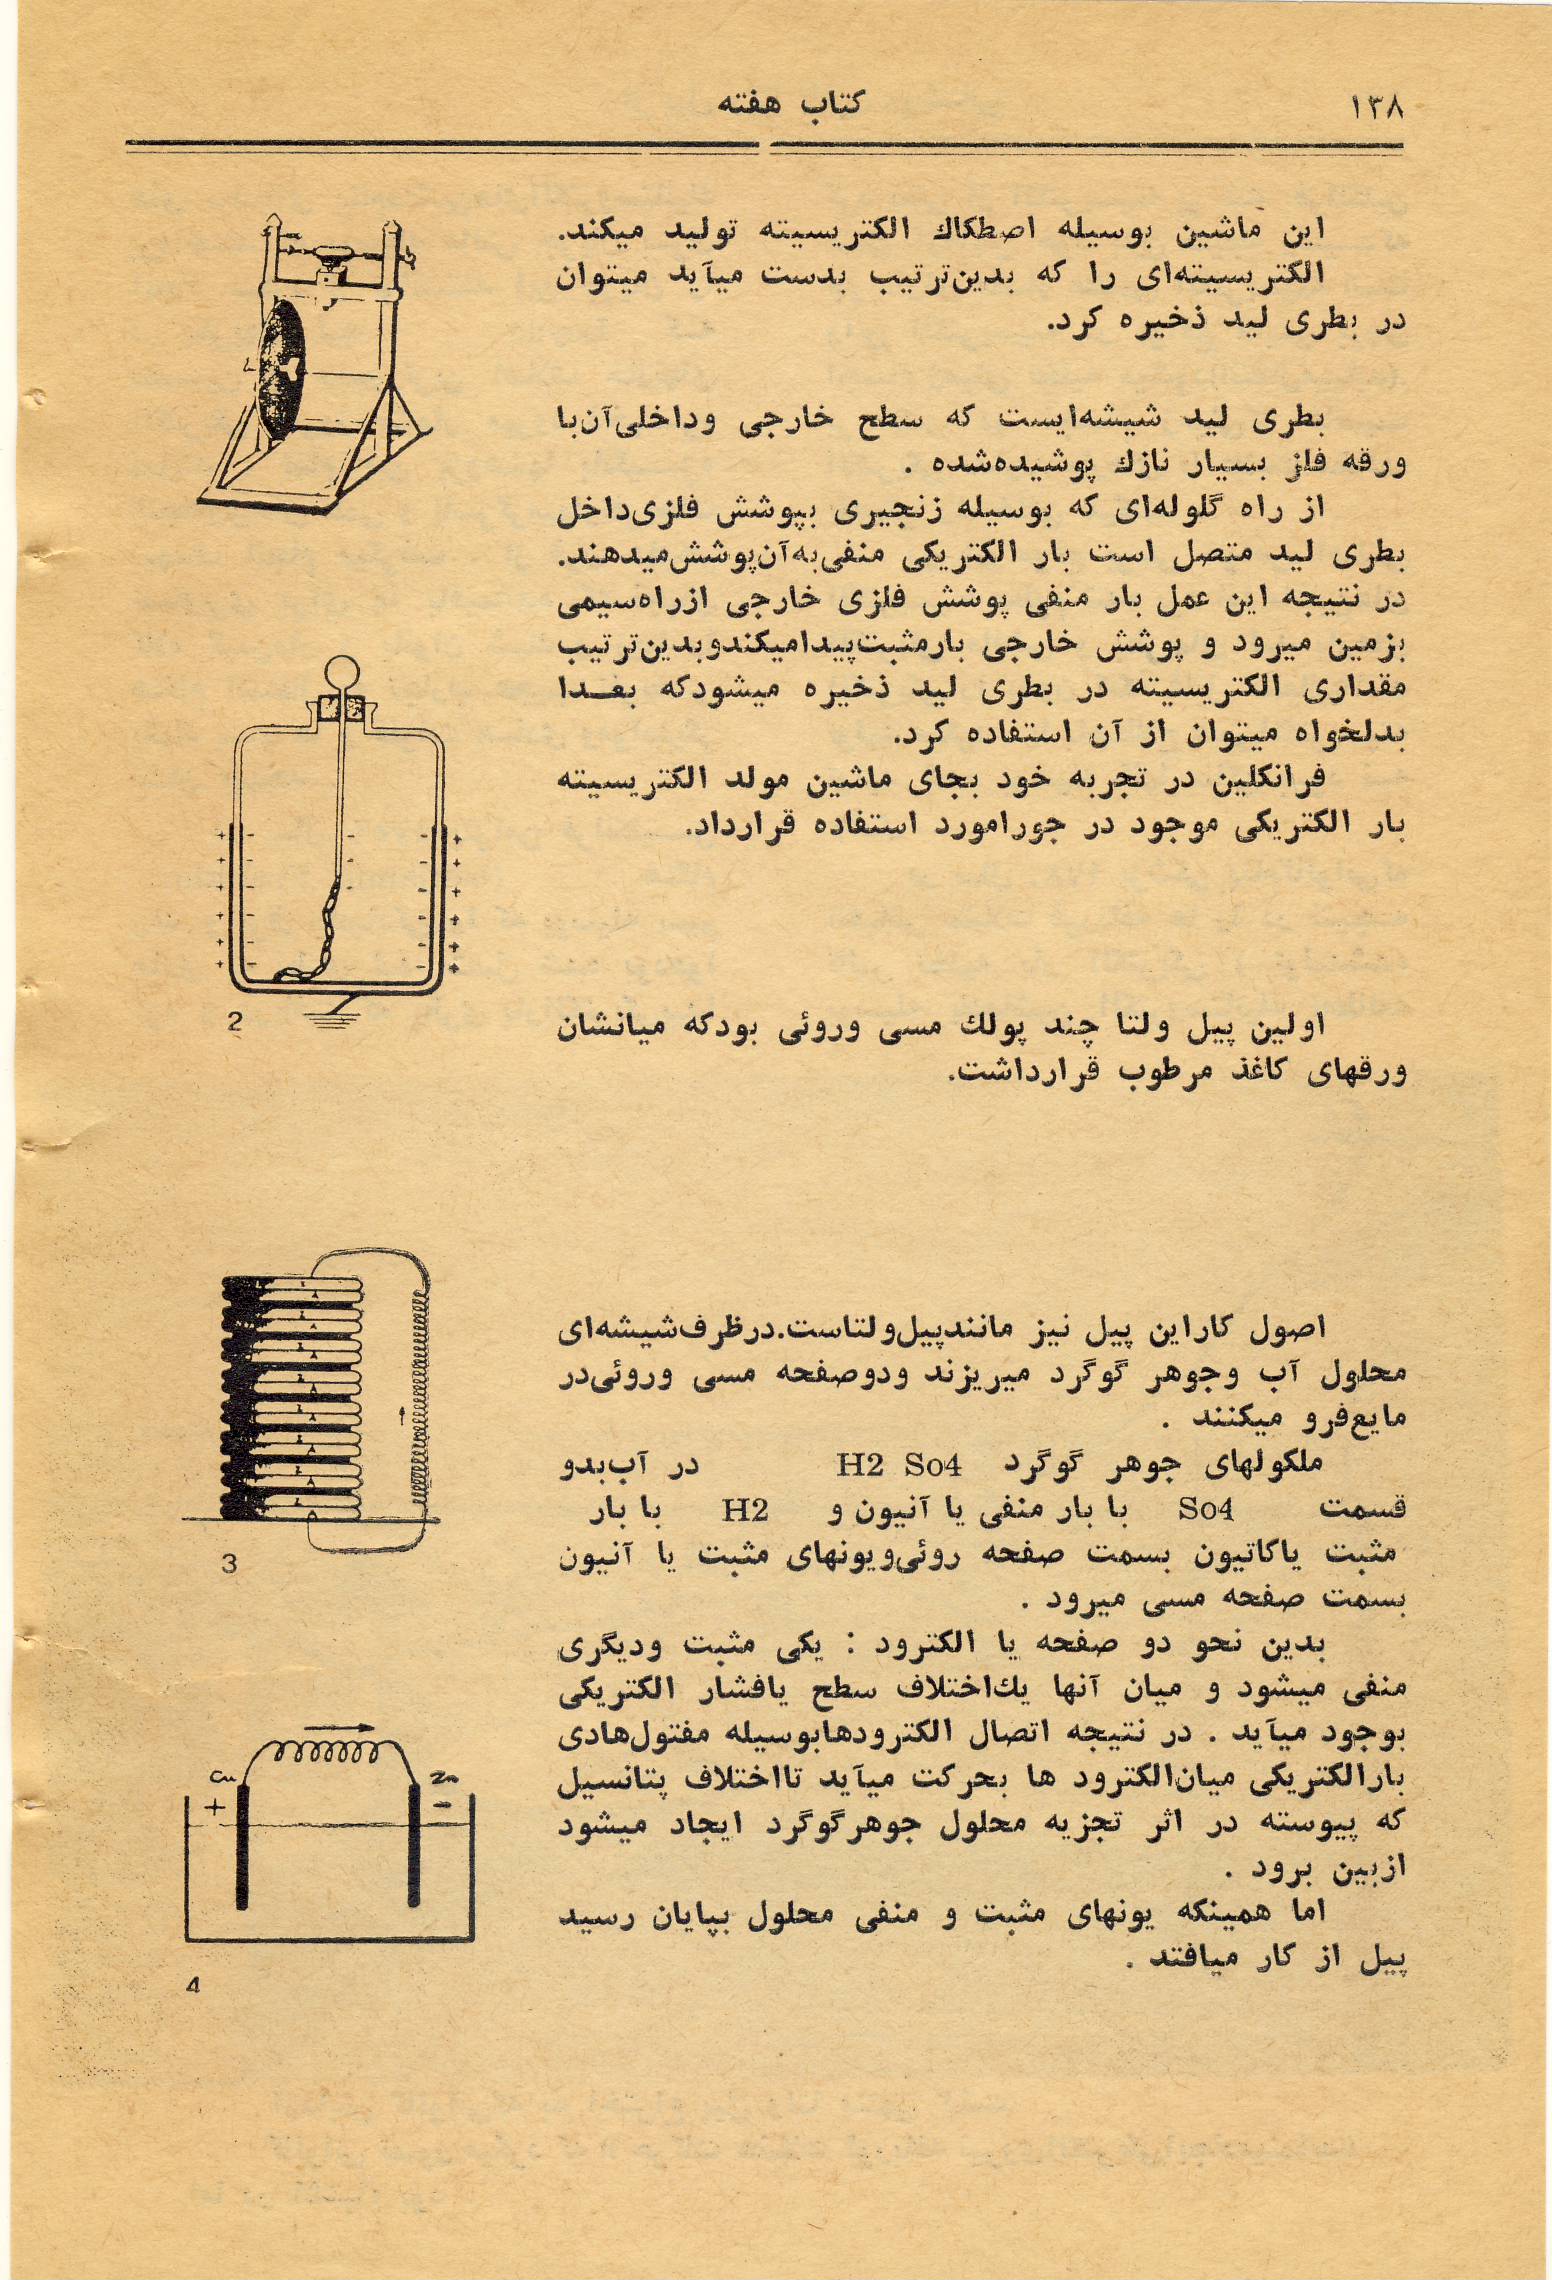 ۱۳۸
کتاب هفته
این ماشین بوسیله اصطکاك الکتریسیته تولید میکند.
الکتریسیته‌ای را که بدین‌ترتیب بدست میآید میتوان
در بطری لید ذخیره کرد.
بطری لید شیشه‌ایست که سطح خارجی وداخلی‌آن‌با
ورقه فلز بسیار نازك پوشیده‌شده .
از راه گلوله‌ای که بوسیله زنجیری بپوشش فلزی‌داخل
بطری لید متصل است بار الکتریکی منفی‌به‌آن‌پوشش‌میدهند.
در نتیجه این عمل بار منفی پوشش فلزی خارجی ازراه‌سیمی
بزمین میرود و پوشش خارجی بارمثبت‌پیدامیکندوبدین‌ترتیب
مقداری الکتریسیته در بطری لید ذخیره میشودکه بعـدا
بدلخواه میتوان از آن استفاده کرد.
فرانکلین در تجربه خود بجای ماشین مولد الکتریسیته
بار الکتریکی موجود در جورامورد استفاده قرارداد.
2
اولین پیل ولتا چند پولك مسی وروئی بودکه میانشان
ورقهای کاغذ مرطوب قرارداشت.
اصول کاراین پیل نیز مانندپیل‌ولتاست.درظرف‌شیشه‌ای
محلول آب وجوهر گوگرد میریزند ودوصفحه مسی وروئی‌در
مایع‌فرو میکنند .
ملکولهای جوهر گوگرد H2 So4 در آب‌بدو
قسمت So4 با بار منفی یا آنیون و H2 با بار
مثبت یاکاتیون بسمت صفحه روئی‌ویونهای مثبت یا آنیون
بسمت صفحه مسی میرود .
3
بدین نحو دو صفحه یا الکترود : یکی مثبت ودیگری
منفی میشود و میان آنها یك‌اختلاف سطح یافشار الکتریکی
بوجود میآید . در نتیجه اتصال الکترودهابوسیله مفتول‌هادی
بارالکتریکی میان‌الکترود ها بحرکت میآید تااختلاف پتانسیل
که پیوسته در اثر تجزیه محلول جوهرگوگرد ایجاد میشود
ازبین برود .
اما همینکه یونهای مثبت و منفی محلول بپایان رسید
پیل از کار میافتد .
Cu Zn
+ -
4